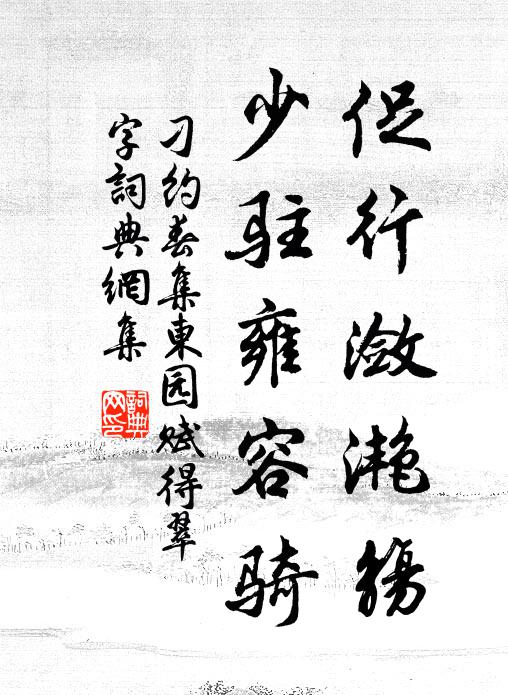 促行潋滟觞
少驻雍容骑
刁约春集東园赋得翠
字詞典網集
詞典网印